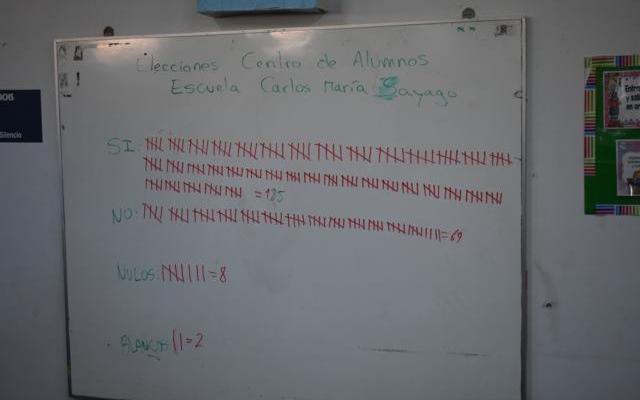 Elecciones Centro de Alumnos
Escuela Carlos María Sayago
SI:
=185
NO: =69
NULOS: =8
BLANCOS: =2
Silencio